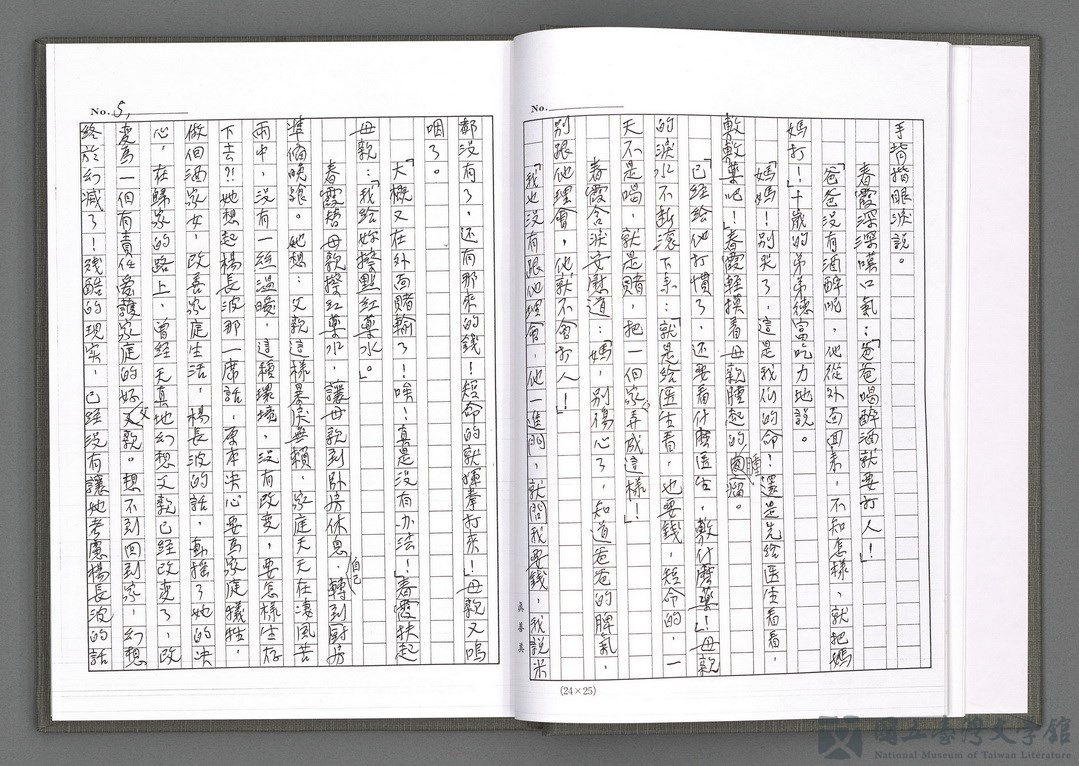 No.
手背揩眼淚說。
春霞深深嘆口氣：「爸爸喝醉酒就要打人！」
「爸爸沒有酒醉呢，他從外面回來，不知怎樣，就把媽
媽打！」十歲的弟弟德富吃力地說。
「媽媽！別哭了，這是我们的命！還是先给医生看看，
敷敷薬吧！」春霞軽摸着母親腫起的腫瘤。
「已經给他打慣了，还要看什麽医生，敷什麽薬！」母親
的淚水不断滾下來：「就是给医生看，也要錢，短命的，一
天不是喝，就是賭，把一個家弄成這樣！」
春霞含淚安慰道：媽，別傷心了，知道爸爸的脾氣，
別跟他理會，他就不会打人！」
「我也没有跟他理會，他一進門，就問我要錢，我說米
(24×25)
真善美
No. 5,
都没有了，还有那來的錢！短命的就揮拳打來！」母親又嗚
咽了。
「大概又在外面賭輸了！唉！真是没有办法！」春霞扶起
母親：「我给妳擦點紅薬水。」
春霞替母親擦紅薬水，讓母親到臥房休息，自己轉到厨房
準備晚飱。她想：父親這樣暴戾無賴，家庭天天在淒風苦
雨中，没有一絲溫暖，這種環境，没有改変，要怎樣生存
下去?!她想起楊長波那一席話，原本決心要為家庭犠牲，
做個酒家女，改善家庭生活，楊長波的話，動搖了她的決
心，在歸家的路上，曾經天真地幻想父親已經改変了，改
変為一個有責任愛護家庭的好父親。想不到回到家，幻想
終於幻滅了！殘酷的現実，已經没有讓她考慮楊長波的話
國立臺灣文學館
National Museum of Taiwan Literature